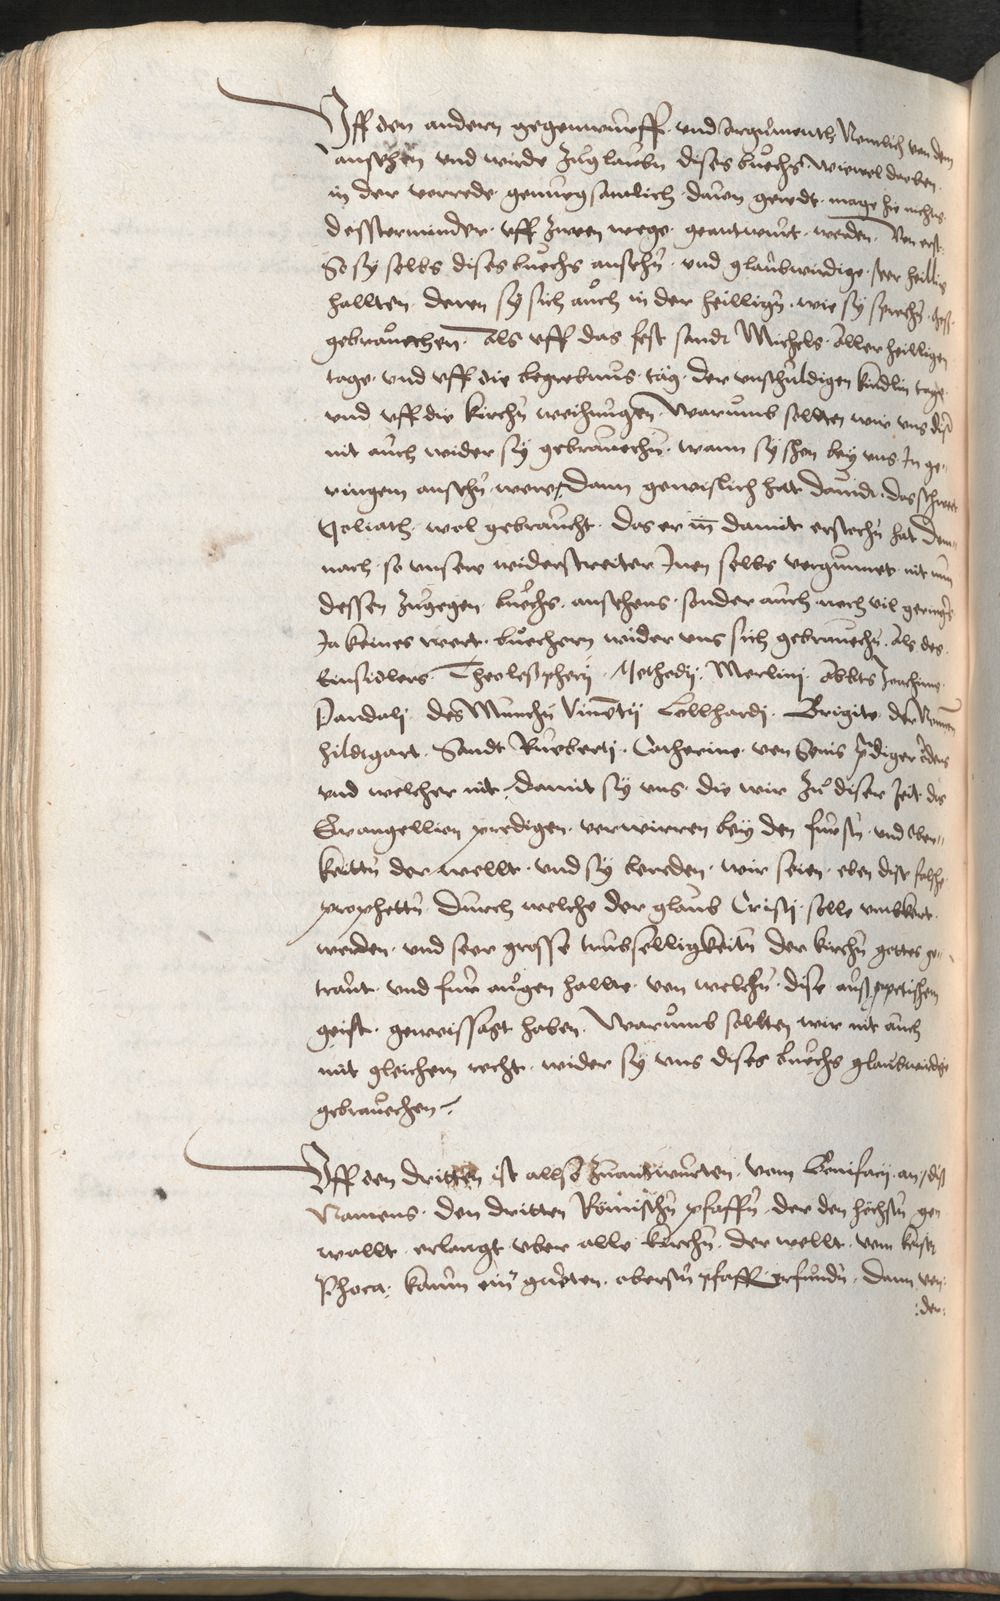 Vff den andern gegenwurff. vnd Argument Nemlich von dem
ansehen vnd wirde zuglauben dises buchs. wiewol darben
in der vorrede genugsamlich dauon geredt. mage hie nichts
desstermynder. vff zwen wege. geantwurt werden. Von erst.
So sy selbs dises buechs ansehn. vnd glaubwirdige. seer heillig
hallten. deren sy sich auch in der heilligen. wie sy sprechn.
gebrauechen. Als vff das fest sandt Michels. Aller heilligen
tage. vnd vff die begrebnus. täg. der vnschuldigen kindlin tage.
vnd vff die kirchn weihungen. Warumb sollten wir vns diß
nit auch wider sy gebrauechn. wann sy schon bey vns In ge-
ringem ansehn. were. Dann gewislich hat dauidt. das schwert
Goliath. wol gebraucht. das er in damit erstechn hat Dem-
nach. so vnsere widerstreiter Inen selbs vergunnet. nit nun
dessen zugegen. buechs. ansehens. sonder auch noch vil gerings
Ja keines wert. buechern wider vns sich gebrauechn. Als des
Einsidlers. Theolesphery. Methedy. Merlinj. Abbts Joachims
Dandalj. des Munchn Vincētij Lollhardj. Brigite. der Nonnen
hildigart. Sandt Rueberti. Catherine. von Senis p̄diger ordens
vnd welcher nit. damit sy vns. die wir zu diser Zeit das
Euangellion predigen. verwirren bey den fursten. vnd Ober-
keittn der wellt. vnd sy bereden. wir seien. eben dise falsche
prophettn. Durch welche der glaub Cristj. solle vmbkert
werden. vnd seer grosse truebselligkeitn der kirchn gottes ge-
traut. vnd fur augen hallte. von welchn. dise auß
geist. geweissagt haben. Warumb sollten wir nit auch
mit gleichem recht. wider sy vns dises buechs glaubwirdige
gebrauechen.
Vff den dritten ist allso zuantwurten. vom Bonifacij. an, diß
Namens. den dritten Römischn pfaffn. der den höchstn gen
wallt. erlangt vber alle kirchn. der wellt. vom keiser
Phoca. kaum ein gueten. oberstn pfaff erfundn. Dann von
:der: